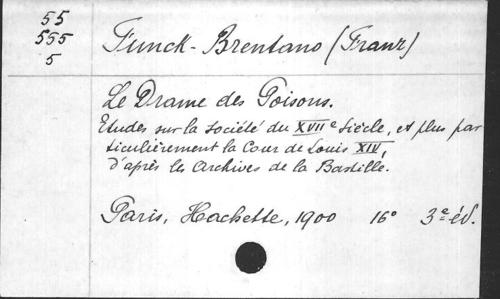 55
555
5
Funck-Brentano (Franz)
Le Drame des Poisons.
Etudes sur la Société du XVIIe Siècle, et plus par
ticulièrement la Cour de Louis XIV,
d'après les Archives de la Bastille.
Paris, Hachette, 1900 16° 3e éd.